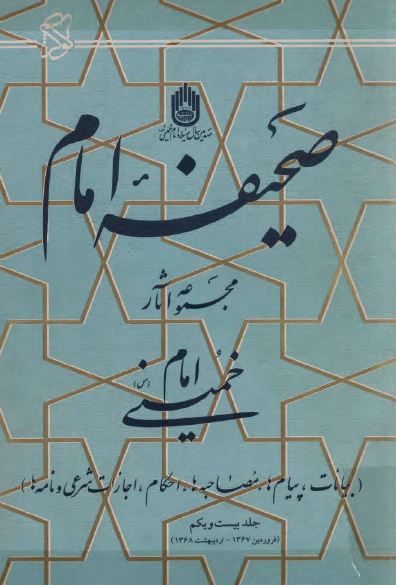 صدمین سال میلاد امام خمینی
صحیفه امام
مجموعه آثار
امام
خمینی (س)
(بیانات، پیام‌ها، مصاحبه‌ها، احکام، اجازات شرعی و نامه‌ها)
جلد بیست و یکم
(فروردین ۱۳۶۷ - اردیبهشت ۱۳۶۸)